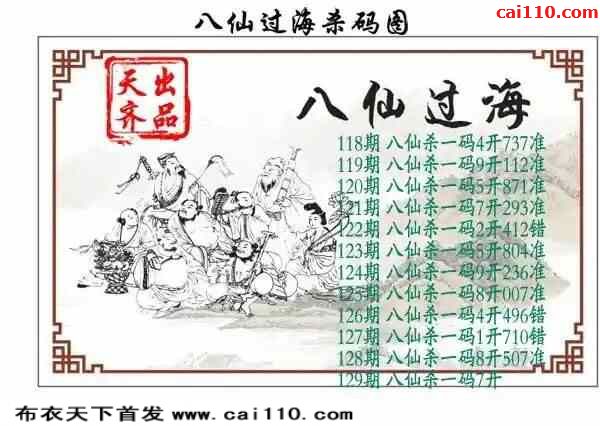 八仙过海杀码图
cai110.com
天齐出品
八仙过海
118期 八仙杀一码4开737准
119期 八仙杀一码9开112准
120期 八仙杀一码5开871准
121期 八仙杀一码7开293准
122期 八仙杀一码2开412错
123期 八仙杀一码5开804准
124期 八仙杀一码9开236准
125期 八仙杀一码8开007准
126期 八仙杀一码4开496错
127期 八仙杀一码1开710错
128期 八仙杀一码8开507准
129期 八仙杀一码7开
布衣天下首发 www.cai110.com